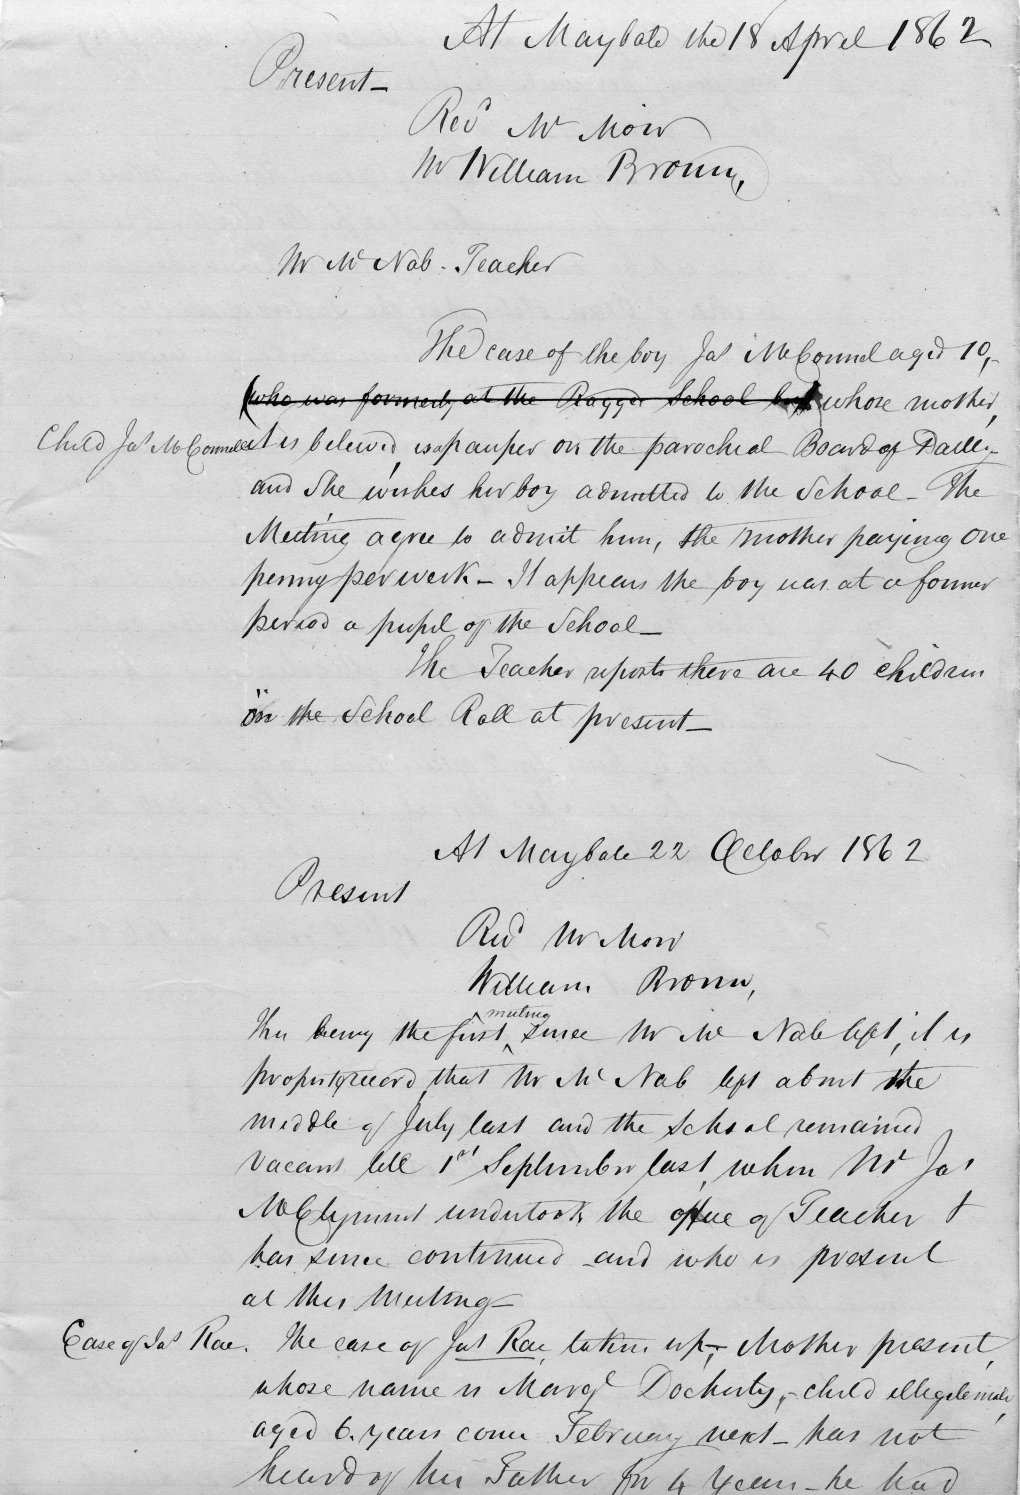 At Maybole the 18 April 1862
Present –
Revd Mr Moir
Mr William Brown,
Mr Mc Nab. Teacher
The case of the boy Jas McConnel aged 10,
(who was formerly at the Ragged School but whose mother,
Child Jas McConnell
it is believed, is a pauper on the parochial Board of Dailly –
and She wishes her boy admitted to the School – The
Meeting agree to admit him, the mother paying One
penny per week – It appears the boy was at a former
period a pupil of the School –
The Teacher reports there are 40 children
on the School Roll at present –
At Maybole 22 October 1862
Present
Revd Mr Moir
William Brown,
This being the first meeting since Mr Mc Nab left, it is
proper to record, that Mr Mc Nab left about the
middle of July last and the School remained
vacant till 1st September last, when Mr Jas
McClymont undertook the office of Teacher &
has since continued and who is present
at this Meeting –
Case of Jas Rae.
The case of Jas Rae, taken up, – Mother present,
whose name is Margt Docherty, – child illegitimate,
aged 6 years come February next – has not
heard of his Father for 4 years – he had